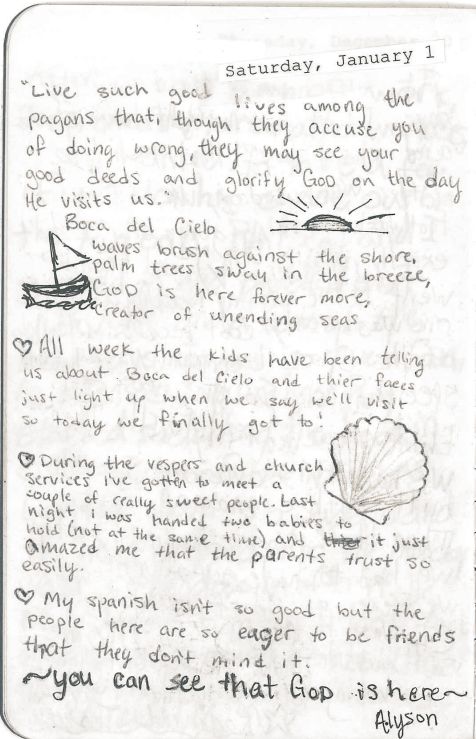 Saturday, January 1
"Live such good lives among the
pagans that, though they accuse you
of doing wrong, they may see your
good deeds and glorify God on the day
He visits us."
Boca del Cielo
waves brush against the shore,
palm trees sway in the breeze,
God is here forever more,
creator of unending seas
♡ All week the kids have been telling
us about Boca del Cielo and thier faces
just light up when we say we'll visit
so today we finally got to!
♡ During the vespers and church
services I've gotten to meet a
couple of really sweet people. Last
night I was handed two babies to
hold (not at the same time) and it just
amazed me that the parents trust so
easily.
♡ My spanish isn't so good but the
people here are so eager to be friends
that they don't mind it.
~you can see that God is here~
Alyson